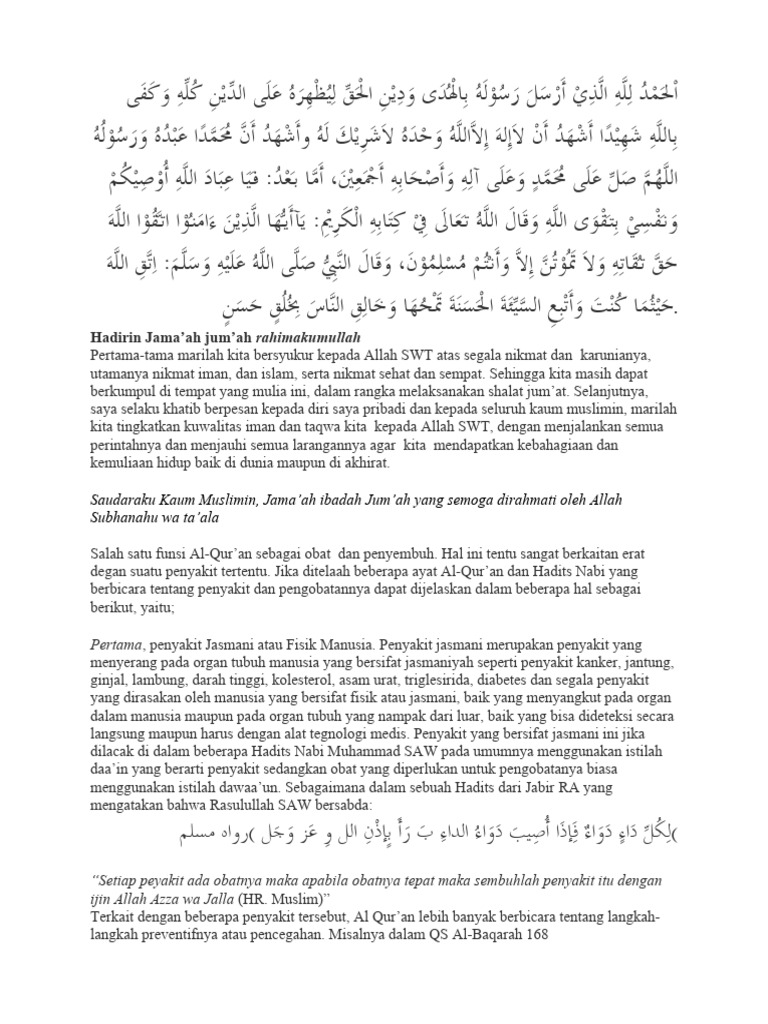 اَلْحَمْدُ لِلَّهِ الَّذِيْ أَرْسَلَ رَسُوْلَهُ بِالْهُدَى وَدِيْنِ الْحَقِّ لِيُظْهِرَهُ عَلَى الدِّيْنِ كُلِّهِ وَكَفَى
بِاللَّهِ شَهِيْدًا أَشْهَدُ أَنْ لاَإِلهَ إِلاَّاللَّهُ وَحْدَهُ لاَشَرِيْكَ لَهُ وأَشْهَدُ أَنَّ مُحَمَّدًا عَبْدُهُ وَرَسُوْلُهُ
اللَّهُمَّ صَلِّ عَلَى مُحَمَّدٍ وَعَلَى آلِهِ وَأَصْحَابِهِ أَجْمَعِيْنَ، أَمَّا بَعْدُ: فَيَا عِبَادَ اللَّهِ أُوْصِيْكُمْ
وَنَفْسِيْ بِتَقْوَى اللَّهِ وَقَالَ اللَّهُ تَعَالَى فِيْ كِتَابِهِ الْكَرِيْمِ: يَآأَيُّهَا الَّذِيْنَ ءَامَنُوْا اتَّقُوْا اللَّهَ
حَقَّ تُقَاتِهِ وَلاَ تَمُوْتُنَّ إِلاَّ وَأَنْتُمْ مُسْلِمُوْنَ، وَقَالَ النَّبِيُّ صَلَّى اللَّهُ عَلَيْهِ وَسَلَّمَ: اِتَّقِ اللَّهَ
حَيْثُمَا كُنْتَ وَأَتْبِعِ السَّيِّئَةَ الْحَسَنَةَ تَمْحُهَا وَخَالِقِ النَّاسَ بِخُلُقٍ حَسَنٍ.
Hadirin Jama’ah jum’ah rahimakumullah
Pertama-tama marilah kita bersyukur kepada Allah SWT atas segala nikmat dan karunianya,
utamanya nikmat iman, dan islam, serta nikmat sehat dan sempat. Sehingga kita masih dapat
berkumpul di tempat yang mulia ini, dalam rangka melaksanakan shalat jum’at. Selanjutnya,
saya selaku khatib berpesan kepada diri saya pribadi dan kepada seluruh kaum muslimin, marilah
kita tingkatkan kuwalitas iman dan taqwa kita kepada Allah SWT, dengan menjalankan semua
perintahnya dan menjauhi semua larangannya agar kita mendapatkan kebahagiaan dan
kemuliaan hidup baik di dunia maupun di akhirat.
Saudaraku Kaum Muslimin, Jama’ah ibadah Jum’ah yang semoga dirahmati oleh Allah
Subhanahu wa ta’ala
Salah satu funsi Al-Qur’an sebagai obat dan penyembuh. Hal ini tentu sangat berkaitan erat
degan suatu penyakit tertentu. Jika ditelaah beberapa ayat Al-Qur’an dan Hadits Nabi yang
berbicara tentang penyakit dan pengobatannya dapat dijelaskan dalam beberapa hal sebagai
berikut, yaitu;
Pertama, penyakit Jasmani atau Fisik Manusia. Penyakit jasmani merupakan penyakit yang
menyerang pada organ tubuh manusia yang bersifat jasmaniyah seperti penyakit kanker, jantung,
ginjal, lambung, darah tinggi, kolesterol, asam urat, triglesirida, diabetes dan segala penyakit
yang dirasakan oleh manusia yang bersifat fisik atau jasmani, baik yang menyangkut pada organ
dalam manusia maupun pada organ tubuh yang nampak dari luar, baik yang bisa dideteksi secara
langsung maupun harus dengan alat tegnologi medis. Penyakit yang bersifat jasmani ini jika
dilacak di dalam beberapa Hadits Nabi Muhammad SAW pada umumnya menggunakan istilah
daa’in yang berarti penyakit sedangkan obat yang diperlukan untuk pengobatanya biasa
menggunakan istilah dawaa’un. Sebagaimana dalam sebuah Hadits dari Jabir RA yang
mengatakan bahwa Rasulullah SAW bersabda:
)لِكُلِّ دَاءٍ دَوَاءٌ فَإِذَا أُصِيبَ دَوَاءُ الداءِ بَ رَأَ بِإِذْنِ الل وِ عَز وَجَل )رواه مسلم
“Setiap peyakit ada obatnya maka apabila obatnya tepat maka sembuhlah penyakit itu dengan
ijin Allah Azza wa Jalla (HR. Muslim)”
Terkait dengan beberapa penyakit tersebut, Al Qur’an lebih banyak berbicara tentang langkah-
langkah preventifnya atau pencegahan. Misalnya dalam QS Al-Baqarah 168